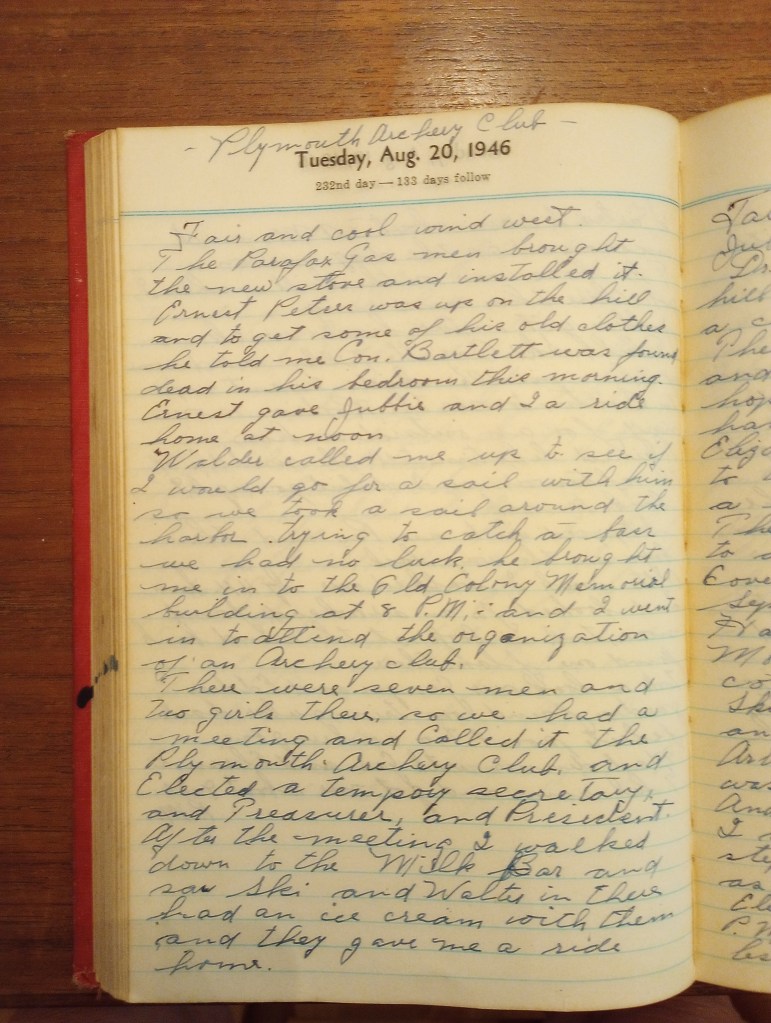 - Plymouth Archery Club -
Tuesday, Aug. 20, 1946
232nd day — 133 days follow
Fair and cool wind west.
The Parafax Gas men brought
the new stove and installed it.
Ernest Peters was up on the hill
and to get some of his old clothes
he told me Con. Bartlett was found
dead in his bedroom this morning.
Ernest gave Jubbie and I a ride
home at noon
Walder called me up to see if
I would go for a sail with him
so we took a sail around the
harbor trying to catch a bass
we had no luck, he brought
me in to the Old Colony Memorial
building at 8 P.M. and I went
in to attend the organization
of an Archery club.
There were seven men and
two girls there, so we had a
meeting and Called it the
Plymouth Archery Club, and
Elected a tempory secretary,
and Treasurer, and President.
After the meeting I walked
down to the Milk Bar and
saw Ski and Walter in there
had an ice cream with them
and they gave me a ride
home.
hill
a c
The
and
hop
har
Eliza
to
a
The
to a
Cove
Sep
Fra
Mo
co
Ski
an
Ar
was
And
I
step
as
Ele
P.M